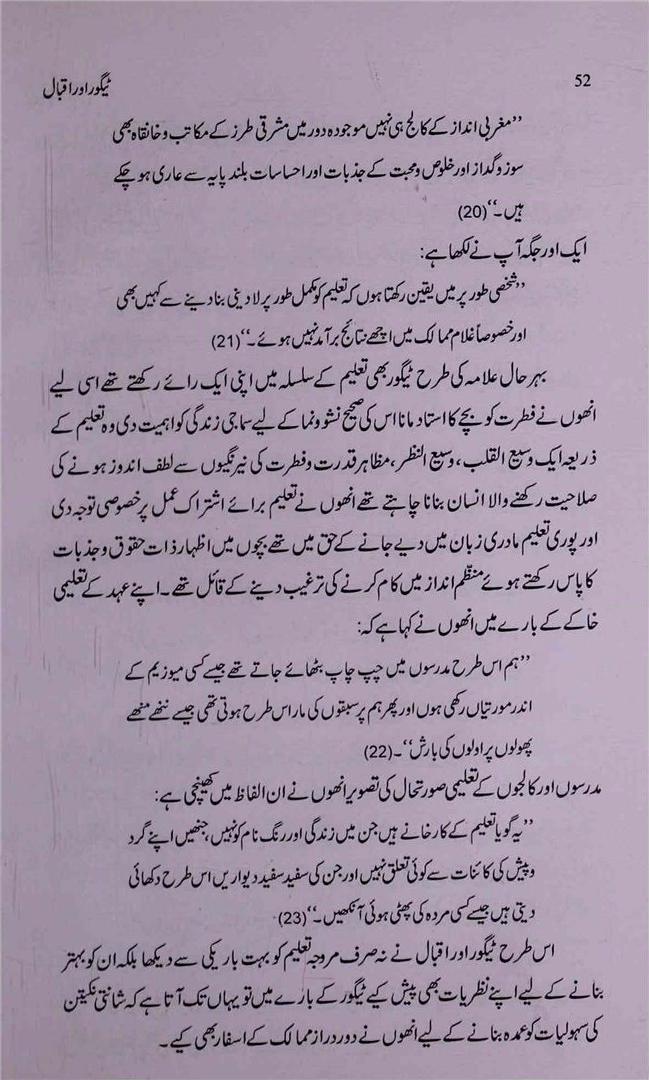 52
ٹیگور اور اقبال
’’مغربی انداز کے کالج ہی نہیں موجودہ دور میں مشرقی طرز کے مکاتب و خانقاہ بھی
سوز و گداز اور خلوص و محبت کے جذبات اور احساسات بلند پایہ سے عاری ہو چکے
ہیں۔‘‘(20)
ایک اور جگہ آپ نے لکھا ہے:
’’شخصی طور پر میں یقین رکھتا ہوں کہ تعلیم کو مکمل طور پر لادینی بنا دینے سے کہیں بھی
اور خصوصاً غلام ممالک میں اچھے نتائج برآمد نہیں ہوئے۔‘‘(21)
بہر حال علامہ کی طرح ٹیگور بھی تعلیم کے سلسلہ میں اپنی ایک رائے رکھتے تھے اسی لیے
انھوں نے فطرت کو بچے کا استاد مانا اس کی صحیح نشوونما کے لیے سماجی زندگی کو اہمیت دی وہ تعلیم کے
ذریعہ ایک وسیع القلب، وسیع النظر، مظاہر قدرت و فطرت کی نیرنگیوں سے لطف اندوز ہونے کی
صلاحیت رکھنے والا انسان بنانا چاہتے تھے انھوں نے تعلیم برائے اشتراک عمل پر خصوصی توجہ دی
اور پوری تعلیم مادری زبان میں دیے جانے کے حق میں تھے بچوں میں اظہار ذات حقوق و جذبات
کا پاس رکھتے ہوئے منظّم انداز میں کام کرنے کی ترغیب دینے کے قائل تھے۔ اپنے عہد کے تعلیمی
خاکے کے بارے میں انھوں نے کہا ہے کہ:
’’ہم اس طرح مدرسوں میں چپ چاپ بٹھائے جاتے تھے جیسے کسی میوزیم کے
اندر مورتیاں رکھی ہوں اور پھر ہم پر سبقوں کی مار اس طرح ہوتی تھی جیسے ننھے منھے
پھولوں پر اولوں کی بارش‘‘۔(22)
مدرسوں اور کالجوں کے تعلیمی صورتحال کی تصویر انھوں نے ان الفاظ میں کھینچی ہے:
’’یہ گویا تعلیم کے کارخانے ہیں جن میں زندگی اور رنگ نام کو نہیں، جنھیں اپنے گرد
و پیش کی کائنات سے کوئی تعلق نہیں اور جن کی سفید سفید دیواریں اس طرح دکھائی
دیتی ہیں جیسے کسی مردہ کی پھٹی ہوئی آنکھیں۔‘‘(23)
اس طرح ٹیگور اور اقبال نے نہ صرف مروجہ تعلیم کو بہت باریکی سے دیکھا بلکہ ان کو بہتر
بنانے کے لیے اپنے نظریات بھی پیش کیے ٹیگور کے بارے میں تو یہاں تک آتا ہے کہ شانتی نکیتن
کی سہولیات کو عمدہ بنانے کے لیے انھوں نے دور دراز ممالک کے اسفار بھی کیے۔